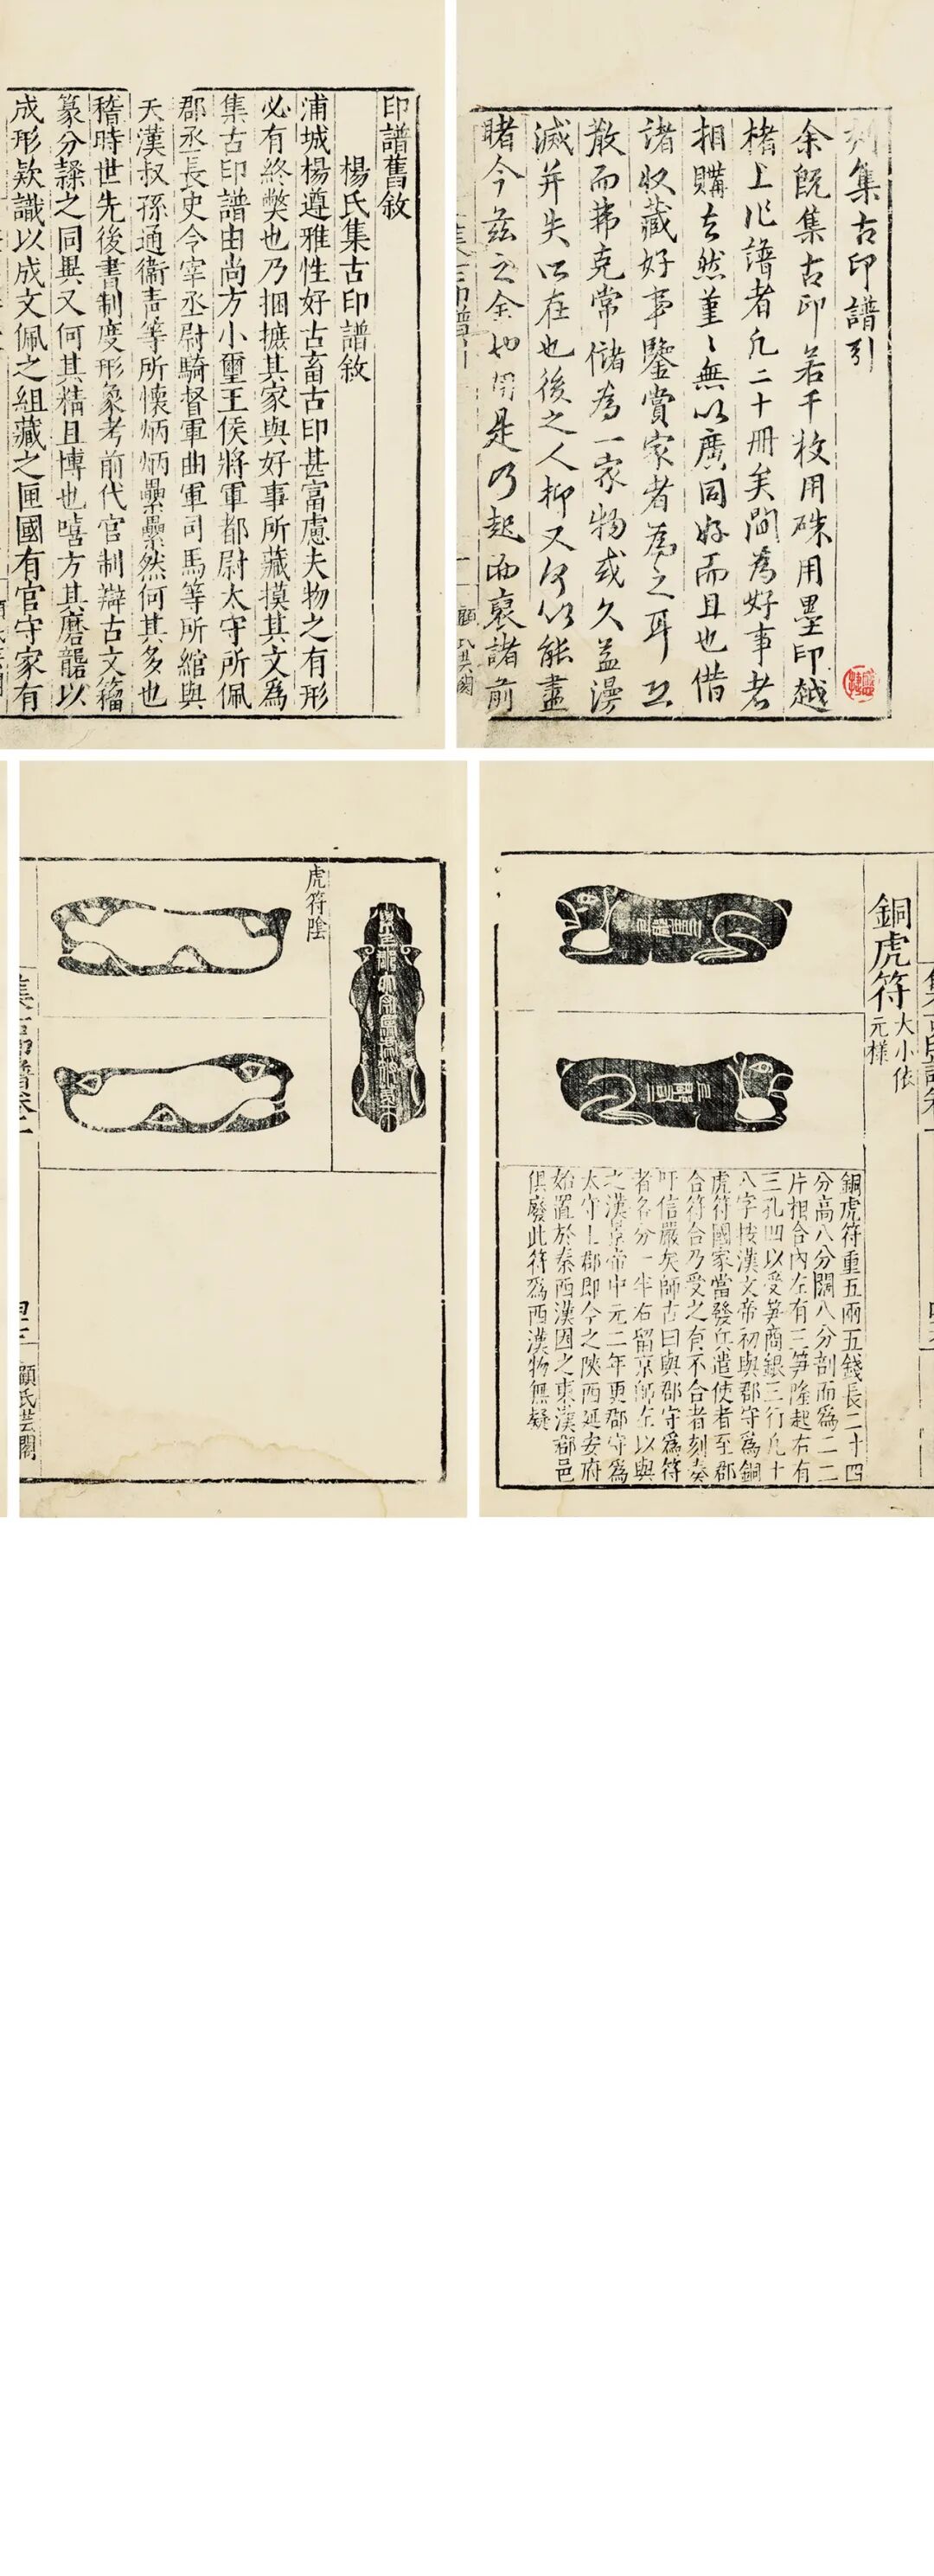 刻集古印譜引
余既集古印若干枚用硃用墨印越
楮上作譜者凡二十冊矣間為好事者
相購去然堇〻無以廣同好而且也借
諸收藏好事鑒賞家者為之耳
散而弗克常儲為一家物或久益漫
滅并失所在也後之人抑又何以能盡
睹今茲之全也用是乃起而裒諸前
顧氏芸閣
印譜舊敘
楊氏集古印譜敘
浦城楊遵雅性好古畜古印甚富慮夫物之有形
必有終獘也乃捆摭其家與好事所藏摸其文爲
集古印譜由尚方小璽王侯將軍都尉太守所佩
郡丞長史令宰丞尉騎督軍曲軍司馬等所綰與
夭漢叔孫通衞青等所懷炳炳纍纍然何其多也
稽時世先後書制度形象考前代官制辯古文籀
篆分隸之同異又何其精且博也嘻方其磨礲以
成形欵識以成文佩之組藏之匣國有官守家有
銅虎符大小依
元樣
銅虎符重五兩五錢長二寸四
分高八分闊八分剖而爲二二
片相合內左有三笋隆起右有
三孔四以受笋商銀三行凡十
八字按漢文帝初與郡守爲銅
虎符國家當發兵遣使者至郡
合符合乃受之有不合者刻奏
吁信嚴矣師古曰與郡守爲符
者各分一半右留京師左以與
之漢景帝中元二年更郡守爲
太守上郡即今之陝西延安府
始置於秦西漢因之東漢郡邑
俱廢此符爲西漢物無疑
虎符陰
顧氏芸閣